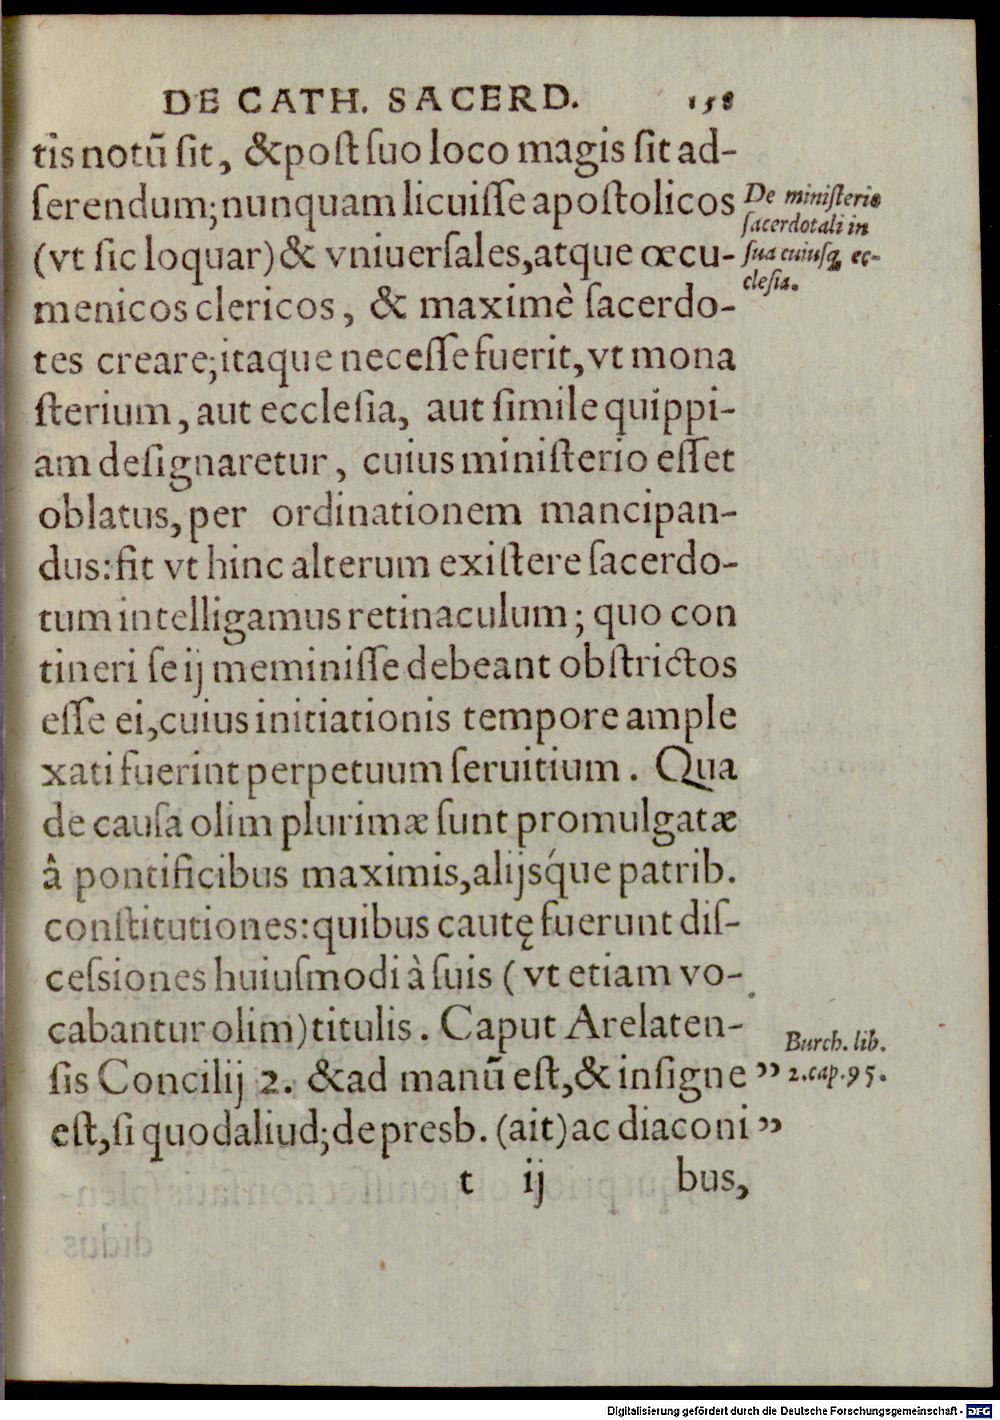 DE CATH. SACERD. 158
tis notū ſit, &poſt ſuo loco magis ſit ad-
ſerendum; nunquam licuiſſe apoſtolicos
(vt ſic loquar) & vniuerſales, atque œcu-
menicos clericos, & maximè ſacerdo-
tes creare; itaque neceſſe fuerit, vt mona
ſterium, aut eccleſia, aut ſimile quippi-
am deſignaretur, cuius miniſterio eſſet
oblatus, per ordinationem mancipan-
dus: fit vt hinc alterum exiſtere ſacerdo-
tum intelligamus retinaculum; quo con
tineri ſe ij meminiſſe debeant obſtrictos
eſſe ei, cuius initiationis tempore ample
xati fuerint perpetuum ſeruitium. Qua
de cauſa olim plurimæ ſunt promulgatæ
â pontificibus maximis, alijsq́ue patrib.
conſtitutiones: quibus cautę fuerunt diſ-
ceſsiones huiuſmodi à ſuis (vt etiam vo-
cabantur olim) titulis. Caput Arelaten-
sis Concilij 2. &ad manū eſt, & inſigne ”
eſt, ſi quod aliud; de presb. (ait) ac diaconi ”
t ij bus,
De miniſterio
ſacerdotali in
ſua cuiuſq; ec-
cleſia.
Burch. lib.
2. cap. 95.
Digitalisierung gefördert durch die Deutsche Forschungsgemeinschaft - DFG